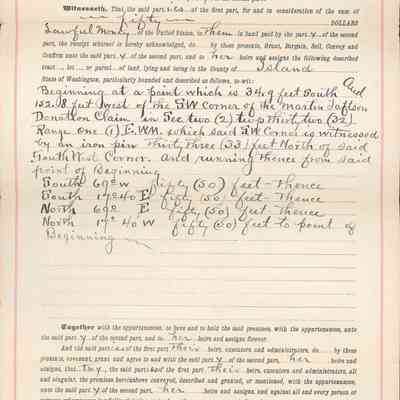 Witnesseth, That the said parties of the first part, for and in consideration of the sum of
fifty DOLLARS
Lawful Money of the United States, Them in hand paid by the part y of the second
part, the receipt whereof is hereby acknowledged, do by these presents, Grant, Bargain, Sell, Convey and
Confirm unto the said part y of the second part, and to her heirs and assigns the following described
tract lot or parcel of land, lying and being in the County of Island
State of Washington, particularly bounded and described as follows, to-wit:
Beginning at a point which is 349 feet South and
152.98 feet West of the SW corner of the Martin Taftson
Donation Claim in Sec two (2) twp thirty two (32)
Range one (1) E.W.M. which said SW Corner is witnessed
by an iron pin thirty three (33) feet North of said
South West Corner. And running thence from said
point of Beginning
South 69° W fifty (50) feet thence
South 17° 40 E fifty (50) feet thence
North 69° E fifty (50) feet thence
North 17° 40 W fifty (50) feet to point of
Beginning
Together with the appurtenances, to have and to hold the said premises, with the appurtenances, unto
the said part y of the second part, and to her heirs and assigns forever.
And the said parties of the first part their heirs, executors and administrators, do by these
presents, covenant, grant and agree to and with the said part y of the second part, her heirs and
assigns, that The y the said parties of the first part, their heirs, executors and administrators, all
and singular, the premises hereinabove conveyed, described and granted, or mentioned, with the appurtenances,
unto the said part y of the second part, her heirs and assigns, and against all and every person or